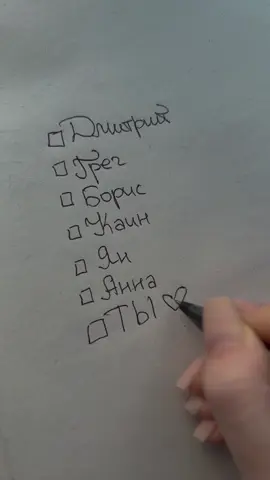 Дмитрий
Грег
Борис
Каин
Ян
Анна
ТЫ♡